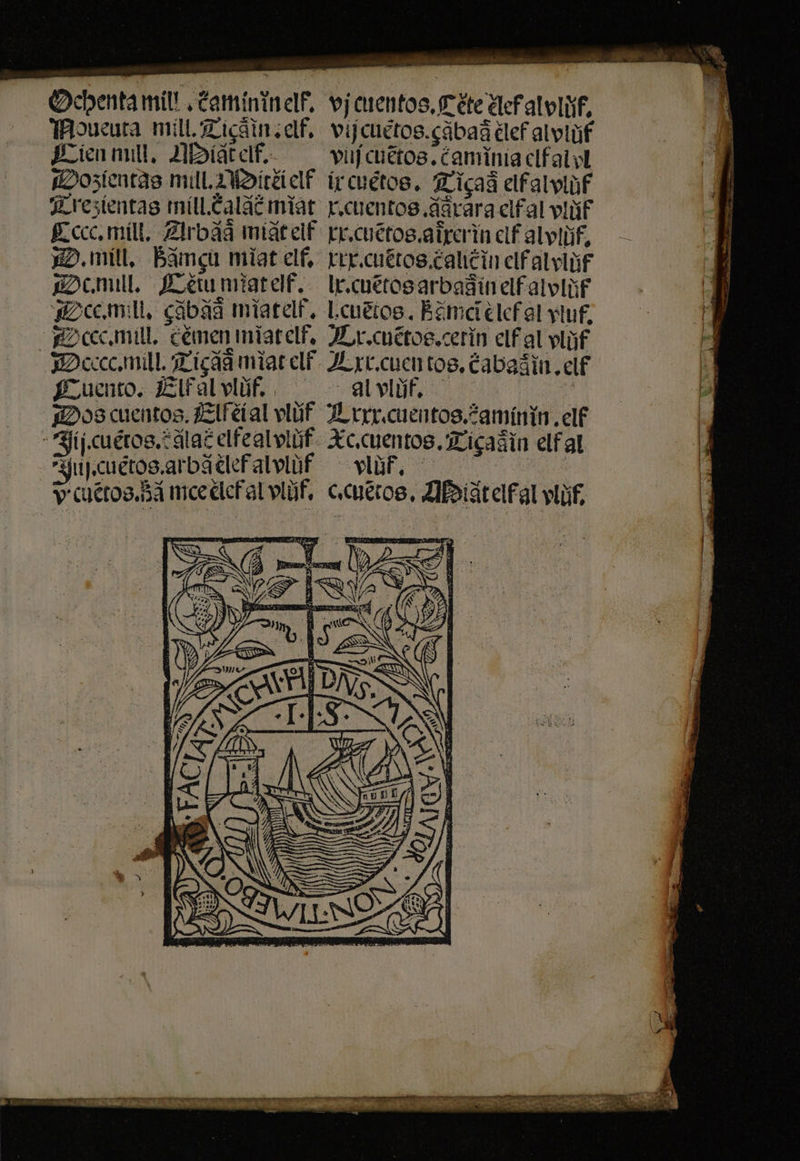 Ochenta mill . çamínin elf,
Noueuta mill. Tiçâin. elf,
Cien mill, Miât elf.
Dozientâs mill. Mitêi elf
Trezientas mill. çalâç miat
Cccc, mill. Arbââ miât elf
D. mill, hâmçu miat elf,
Dc. mill. Cêtu miat elf.
Dcc. mill, çâbââ miat elf,
Dccc. mill. cêmen miat elf,
Dcccc. mill. Tiçââ miat elf
Cuento. Elf al vlûf.
Dos cuentos. Elfêi al vlûf
iij. cuêtos. çâlaç elfe al vlûf
iiij. cuêtos. arbâ êlef al vlûf
v cuêtos. hâ mce êlef al vlûf,
vj cuentos, Cête êlef al vlûf,
vij cuêtos. çâbaâ êlef al vlûf
viij cuêtos. çaminia elf al vl
ix cuêtos. Tiçaâ elf al vlûf
x. cuentos. ââxara elf al vlûf
xx. cuêtos. aîxerin elf al vlûf,
xxx. cuêtos. çaliçin elf al vlûf
lx. cuêtos arbaâin elf al vlûf
l. cuêtos. hâmci êlef al vluf,
Lx. cuêtos. cetin elf al vlûf
Lxx. cuentos, çabaâin. elf
al vlûf,
Lxxx. cuentos. çamínín. elf
Xc. cuentos. Tiçaâin elf al
vlûf,
c. cuêtos, Miât elf al vlûf,
DNS. MICHI ADIVTOR.
NON TIMEBO.
QVID FACIAT MICHI H
I·H·S·